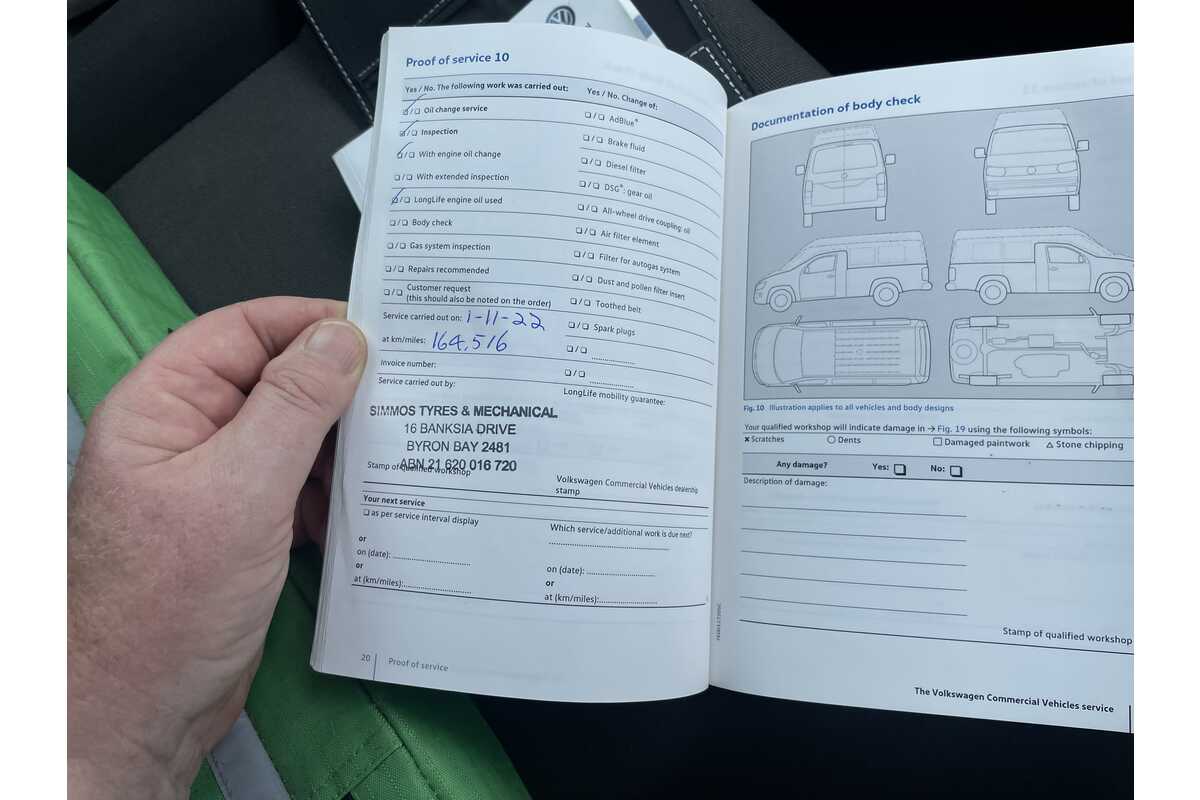 Proof of service 10
Yes / No. The following work was carried out:
☑/❏ Oil change service
☑/❏ Inspection
☑/❏ With engine oil change
❏/❏ With extended inspection
☑/❏ LongLife engine oil used
❏/❏ Body check
❏/❏ Gas system inspection
❏/❏ Repairs recommended
❏/❏ Customer request
(this should also be noted on the order)
Service carried out on: 1-11-22
at km/miles: 164,516
Invoice number:
Service carried out by:
SIMMOS TYRES & MECHANICAL
16 BANKSIA DRIVE
BYRON BAY 2481
ABN 21 620 016 720
Stamp of qualified workshop
Yes / No. Change of:
❏/❏ AdBlue®
❏/❏ Brake fluid
❏/❏ Diesel filter
❏/❏ DSG®: gear oil
❏/❏ All-wheel drive coupling: oil
❏/❏ Air filter element
❏/❏ Filter for autogas system
❏/❏ Dust and pollen filter insert
❏/❏ Toothed belt
❏/❏ Spark plugs
❏/❏ ...............
❏/❏ ...............
LongLife mobility guarantee:
Volkswagen Commercial Vehicles dealership
stamp
Your next service
❏ as per service interval display
or
on (date): ...............
or
at (km/miles):...............
Which service/additional work is due next?
...............
on (date): ...............
or
at (km/miles):...............
20 Proof of service
Documentation of body check
Fig. 10 Illustration applies to all vehicles and body designs
Your qualified workshop will indicate damage in → Fig. 19 using the following symbols:
× Scratches ○ Dents □ Damaged paintwork △ Stone chipping
Any damage? Yes: ❏ No: ❏
Description of damage:
Stamp of qualified workshop
The Volkswagen Commercial Vehicles service